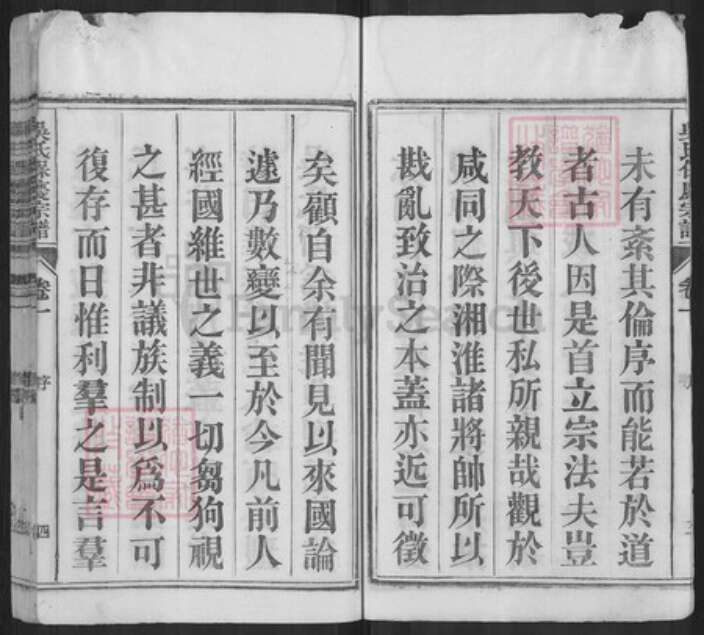 未有紊其倫序而能若於道
者古人因是首立宗法夫豈
教天下後世私所親哉觀於
咸同之際湘淮諸將帥所以
戡亂致治之本蓋亦近可徵
矣顧自余有聞見以來國論
遽乃數變以至於今凡前人
經國維世之義一切芻狗視
之甚者非議族制以爲不可
復存而日惟利羣之是言羣
卷一
序
四
FamilySearch